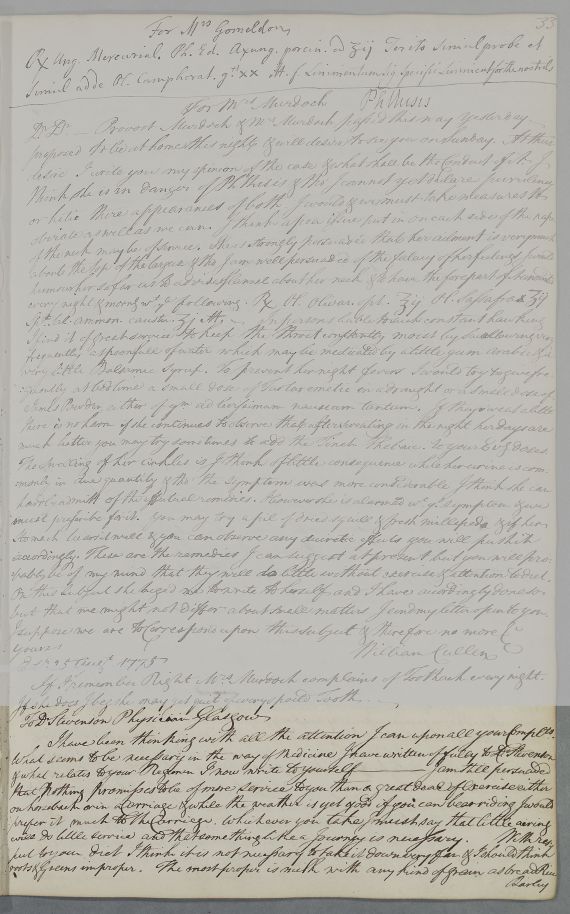 33
For Mrs Gomeldon
Rx Ung. Mercurial. Ph. Ed. Axung. porcin. ad ℥ij Terito simul probe et
simul adde Ol. Camphorat. gtt xx M. f. Linimentum
For Mrs Murdoch Phthisis
Dr Dr Provost Murdoch & Mrs Murdoch passed this way yesterday
proposed to be at home this night & will desire to see you on Sunday. At their
desire I write you my opinion of the case & what shall be the conduct of it. I
think she is in danger of Phthisis & tho I cannot yet declare purulency
or hectic there appearances of both I would & we must take measures to
obviate as well as we can. I think a pea issue put in on each side of the nape
of the neck may be of service. Am strongly persuaded that her ailment is very much
about the top of the larynx & tho I am well persuaded of the
humour her so far as to a
every night & morng wt ye following. Rx Ol. Olivar. opt. ℥ij Ol. Sassafras ʒij
Spt. Sal. ammon. caustic. ʒj M. In persons liable to such constant hawking
I find it of great service to keep the throat constantly moist by swallowing very
frequently a spoonfull of water which may be medicated by a little gum arabic & a
very little Balsamic Syrup. To prevent her night fevers I would try to give fre-
quently at bed time a small dose of Tartar emetic in a draught or a small dose of
James's Powder either of ym ad levissimam nauseam tantum. If they sweat a little
there is no harm & if she continues to observe that after sweating in the night her days are
much better you may try sometimes to add the Tinct. Thebaic. to your
The swelling of her ancles is I think of little consequence while her urine is com-
monly in due quantity & tho the symptom was more considerable I think she can
hardly admit of the effectual remedies. However she is alarmed wt ye symptom & we
must prescribe for it. You may try a pill of dried squill & fresh millepeds & if her
stomach bears it well & you can observe any diuretic effects you will push it
accordingly. These are the remedies I can suggest at present but you will pro-
bably be of my mind that they will do little without exercise & attention to diet.
On this subject she beg'd me to write to herself and I have accordingly done so
but that we might not differ about small matters I send my letter open to you.
I suppose we are to Correspond upon this subject & therefore no more
Yours William Cullen
Edr 25 Augt 1775
If I remember Right Mrs Murdoch complains of Toothach every night.
If she does I beg she may get quit of every spoild Tooth.
To Dr Stevenson Physician Glasgow
I have been thinking with all the attention I can upon all your Complts.
What seems to be necessary in the way of Medicine I have written of fully to Dr Stevenson
& what relates to your Regimen I now write to yourself. I am still persuaded
that Nothing promises to be of more service to you than a great deal of exercise either
on horseback or in a carriage & while the weather is yet good if you can bear riding I would
prefer it much to the Carriage. Whichever you take I must say that little airing
will do little service and that something like a Journey is necessary. With res-
pect to your diet I think it is not necessary to take it down very far & I should think
roots & Greens improper. The most proper is milk with any kind of grain as bread Rice
Barley